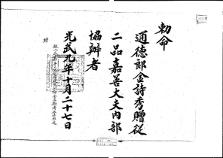 勅命
通德郎金詩秀贈從
二品嘉善大夫內部
協辦者
光武元年十月二十七日